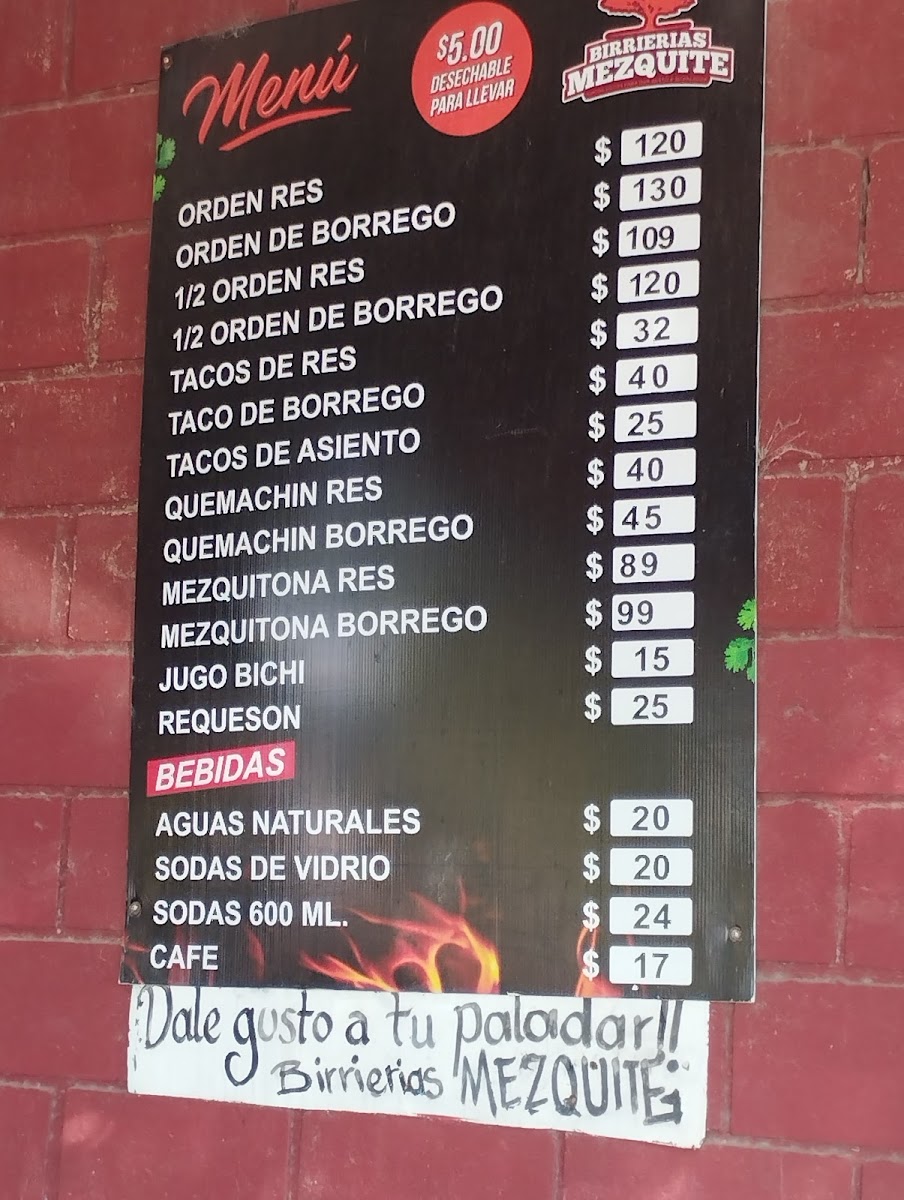 Menú
$5.00
DESECHABLE
PARA LLEVAR
BIRRIERIAS
MEZQUITE
ORDEN RES $ 120
ORDEN DE BORREGO $ 130
1/2 ORDEN RES $ 109
1/2 ORDEN DE BORREGO $ 120
TACOS DE RES $ 32
TACO DE BORREGO $ 40
TACOS DE ASIENTO $ 25
QUEMACHIN RES $ 40
QUEMACHIN BORREGO $ 45
MEZQUITONA RES $ 89
MEZQUITONA BORREGO $ 99
JUGO BICHI $ 15
REQUESON $ 25
BEBIDAS
AGUAS NATURALES $ 20
SODAS DE VIDRIO $ 20
SODAS 600 ML. $ 24
CAFE $ 17
Dale gusto a tu paladar!!
Birrierias MEZQUITE